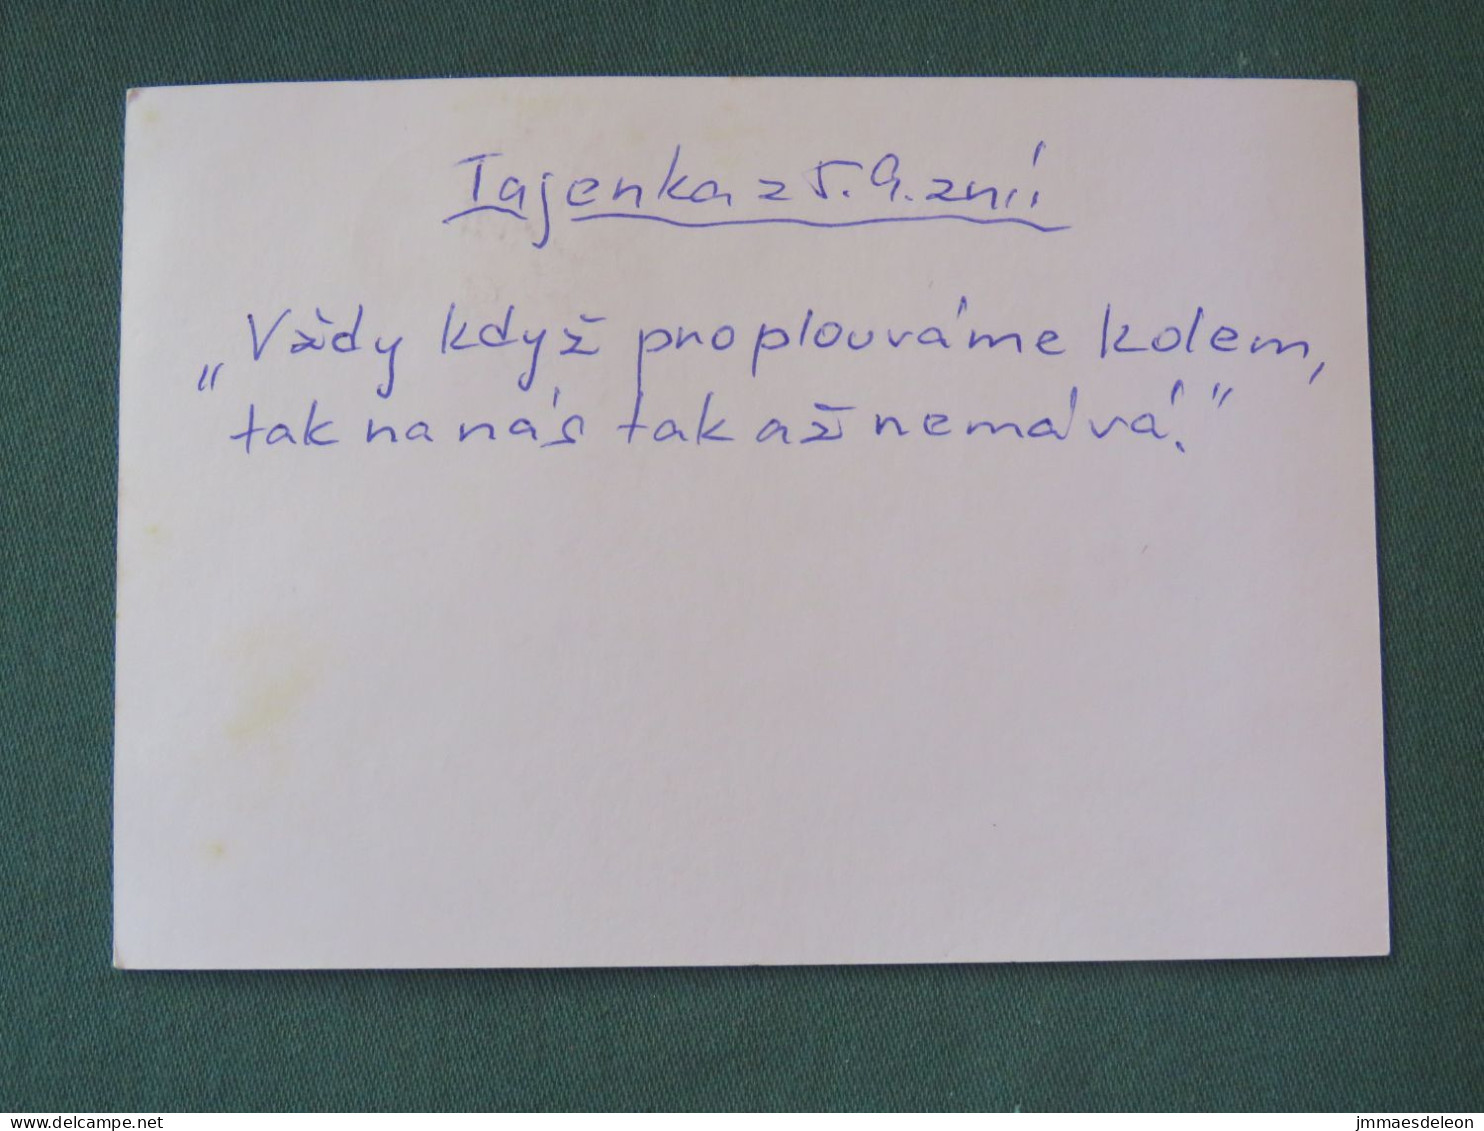 Tajenka z 5.9. zní:
„Vždy když proplouváme kolem,
tak na nás tak až nemává."
www.delcampe.net
jmmaesdeleon